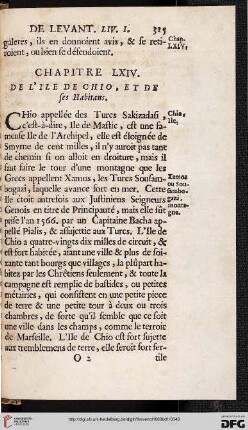 DE LEVANT. LIV. I. 315
galeres, ils en donnoient avis, & se reti-
roient, ou bien se défendoient.
Chap.
LXIV.
CHAPITRE LXIV.
DE L'ILE DE CHIO, ET DE
ses Habitans.
CHio appellée des Turcs Sakizadasi,
c'est-à-dire, Ile de Mastic, est une fa-
meuse Ile de l'Archipel, elle est éloignée de
Smyrne de cent milles, il n'y auroit pas tant
de chemin si on alloit en droiture, mais il
faut faire le tour d'une montagne que les
Grecs appellent Xamos, les Turcs Sousam-
bogazi, laquelle avance fort en mer. Cette
Ile étoit autrefois aux Justiniens Seigneurs
Genois en titre de Principauté, mais elle fut
prise l'an 1566. par un Capitaine Bacha ap-
pellé Pialis, & assujettie aux Turcs. L'Ile de
Chio a quatre-vingts dix milles de circuit, &
est fort habitée, aiant une ville & plus de soi-
xante tant bourgs que villages, la plûpart ha-
bitez par les Chrêtiens seulement, & toute la
campagne est remplie de bastides, ou petites
métairies, qui consistent en une petite piece
de terre & une petite tour à deux ou trois
chambres, de sorte qu'il semble que ce soit
une ville dans les champs, comme le terroir
de Marseille. L'Ile de Chio est fort sujette
aux tremblemens de terre, elle seroit fort fer-
O 2 tile
Chio,
Ile.
Xamos
ou Sou-
sambo-
gazi,
monta-
gne.
UNIVERSITÄTS-
BIBLIOTHEK
HEIDELBERG
DFG